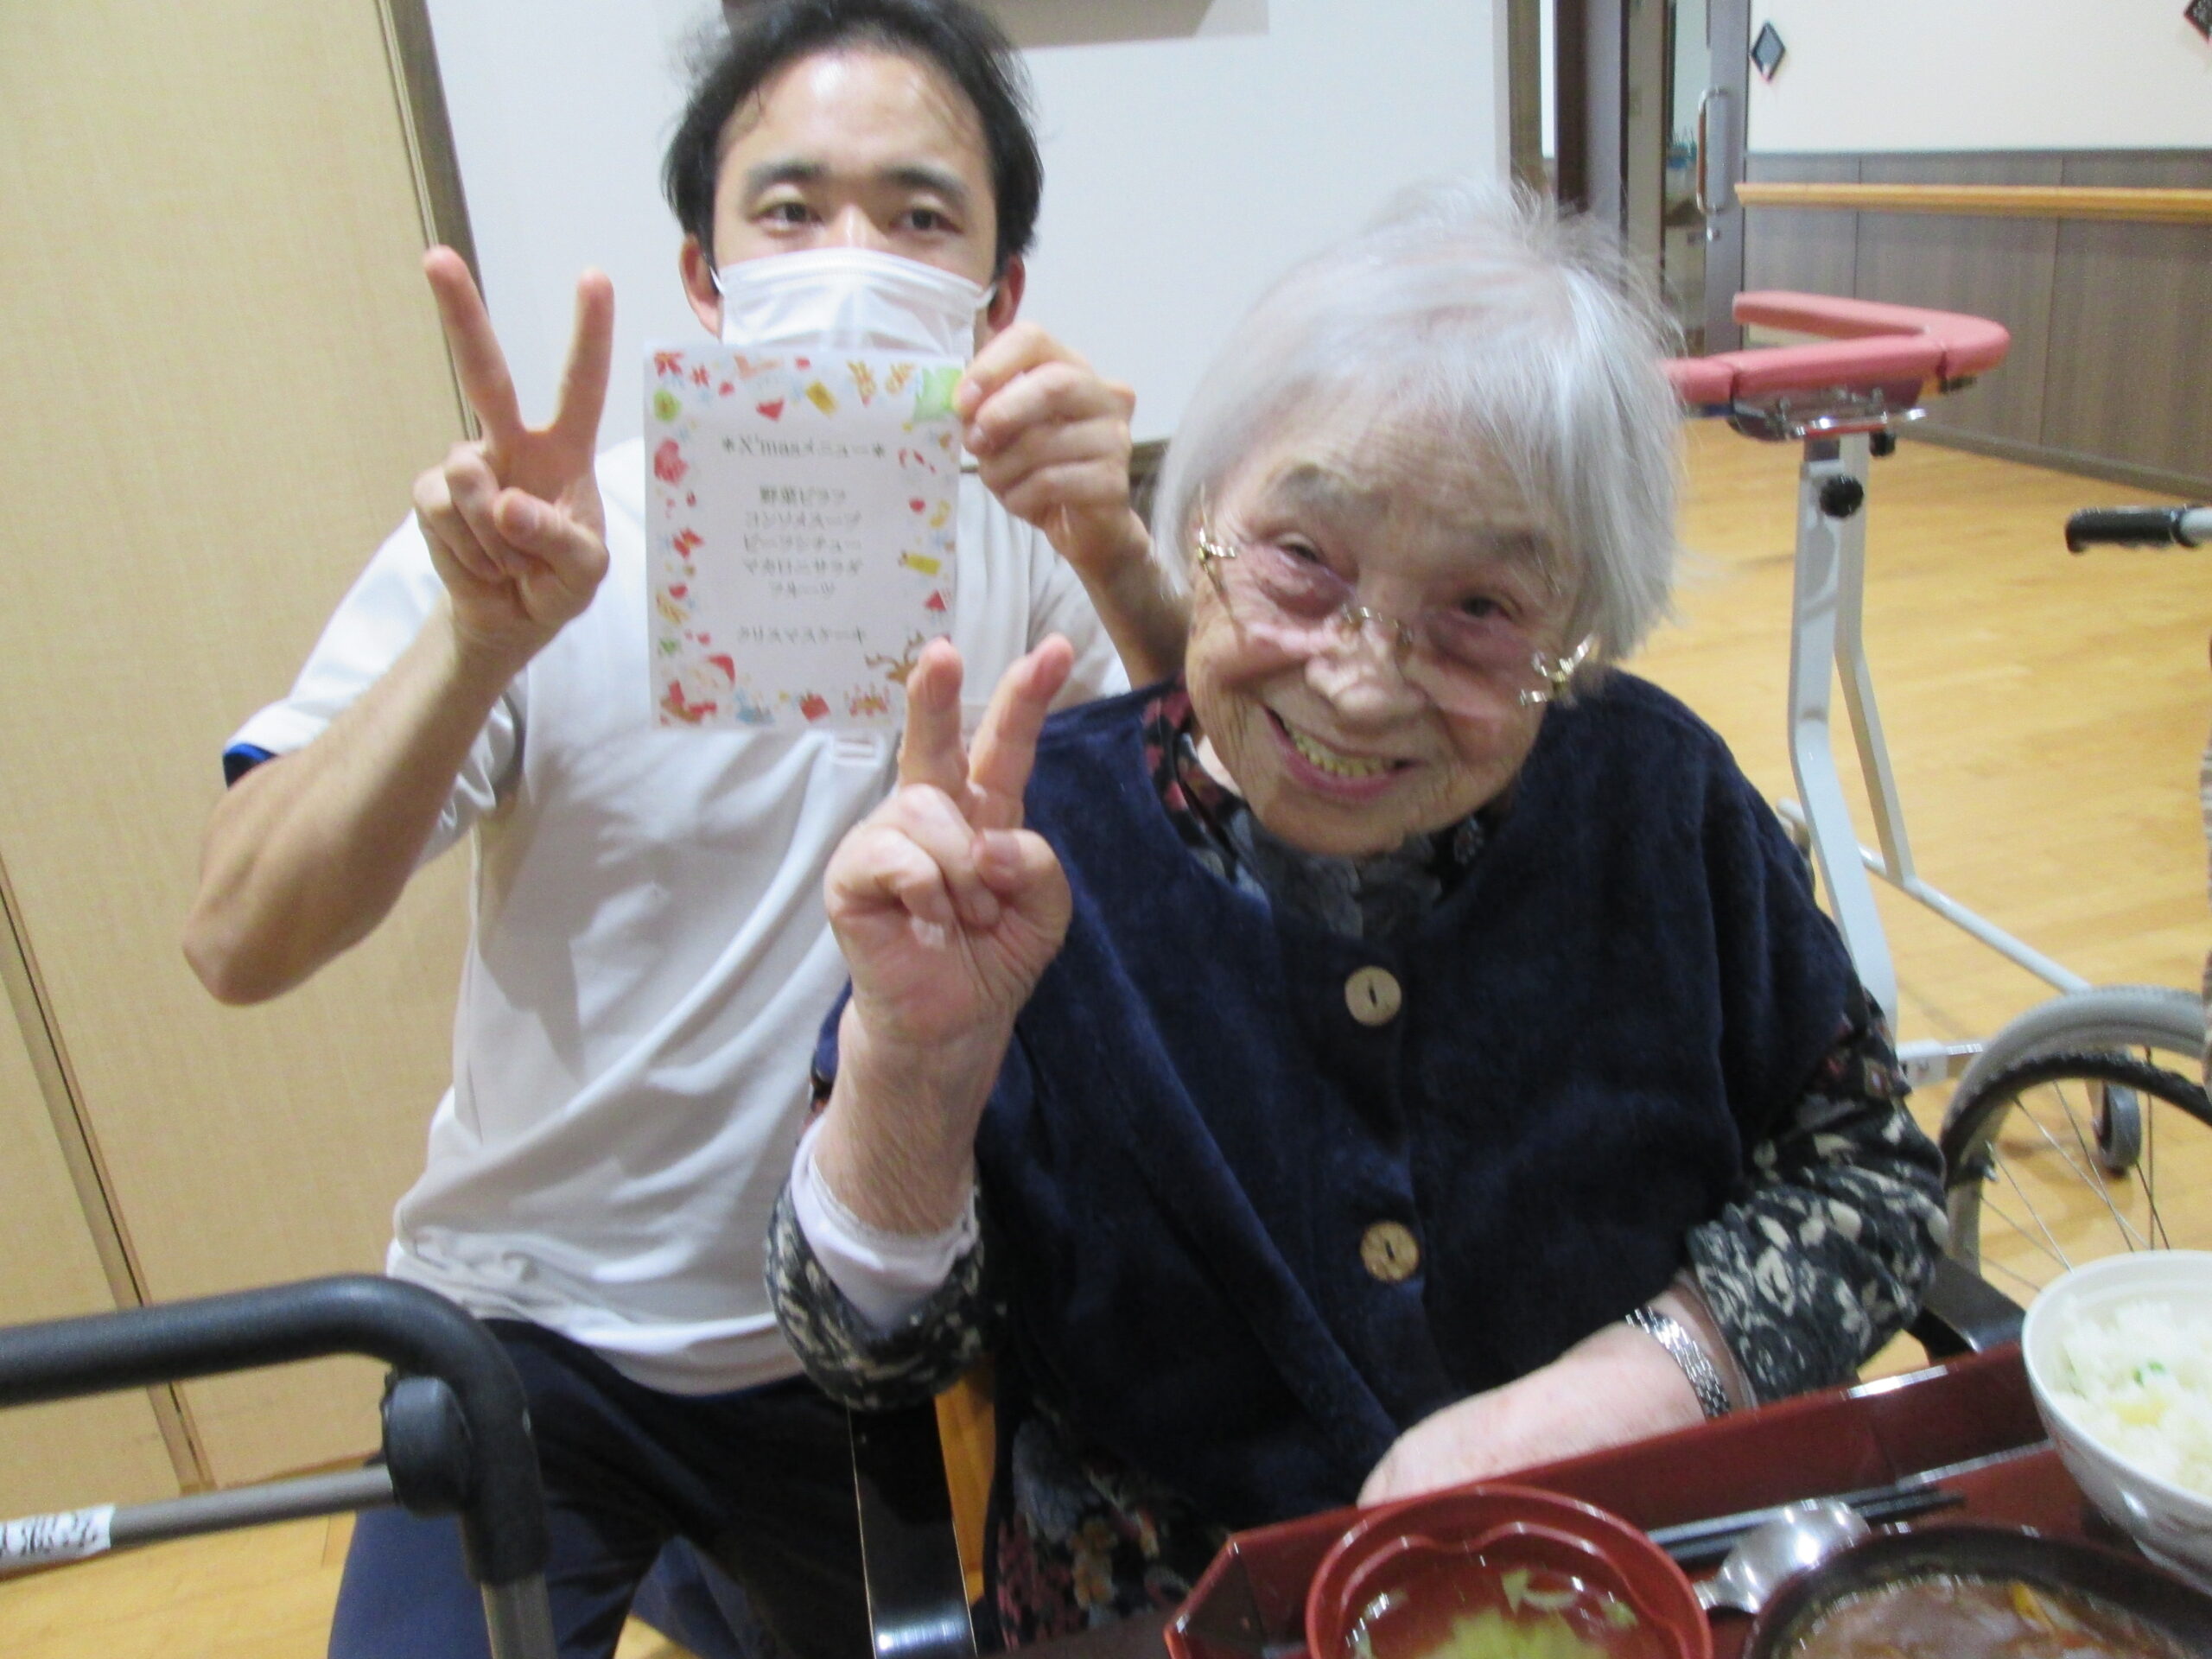 ＊X'masメニュー＊
野菜ピラフ
コンソメスープ
ビーフシチュー
マカロニサラダ
フルーツ
クリスマスケーキ